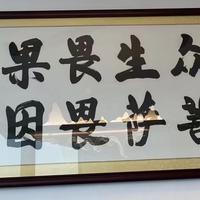 众生畏果
菩萨畏因